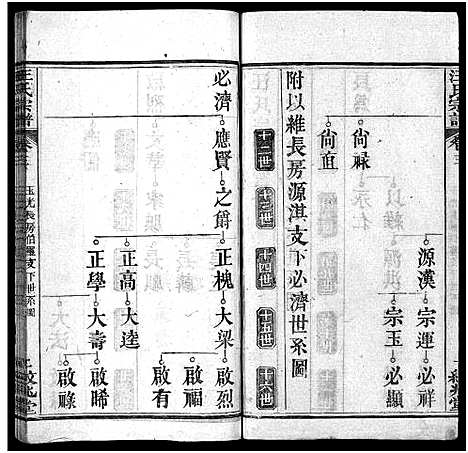 汪氏宗譜
卷三
源漢 宗運 必祥
宗玉 必顯
尚祿
尚直
附以維長房源淇支下必濟世系圖
十二世 十三世 十四世 十五世 十六世
必濟 應賢 之爵 正槐 大梁 啟烈
啟福
啟有
正高 大達
正學 大壽 啟晞
啟祿
汪氏宗譜
卷三